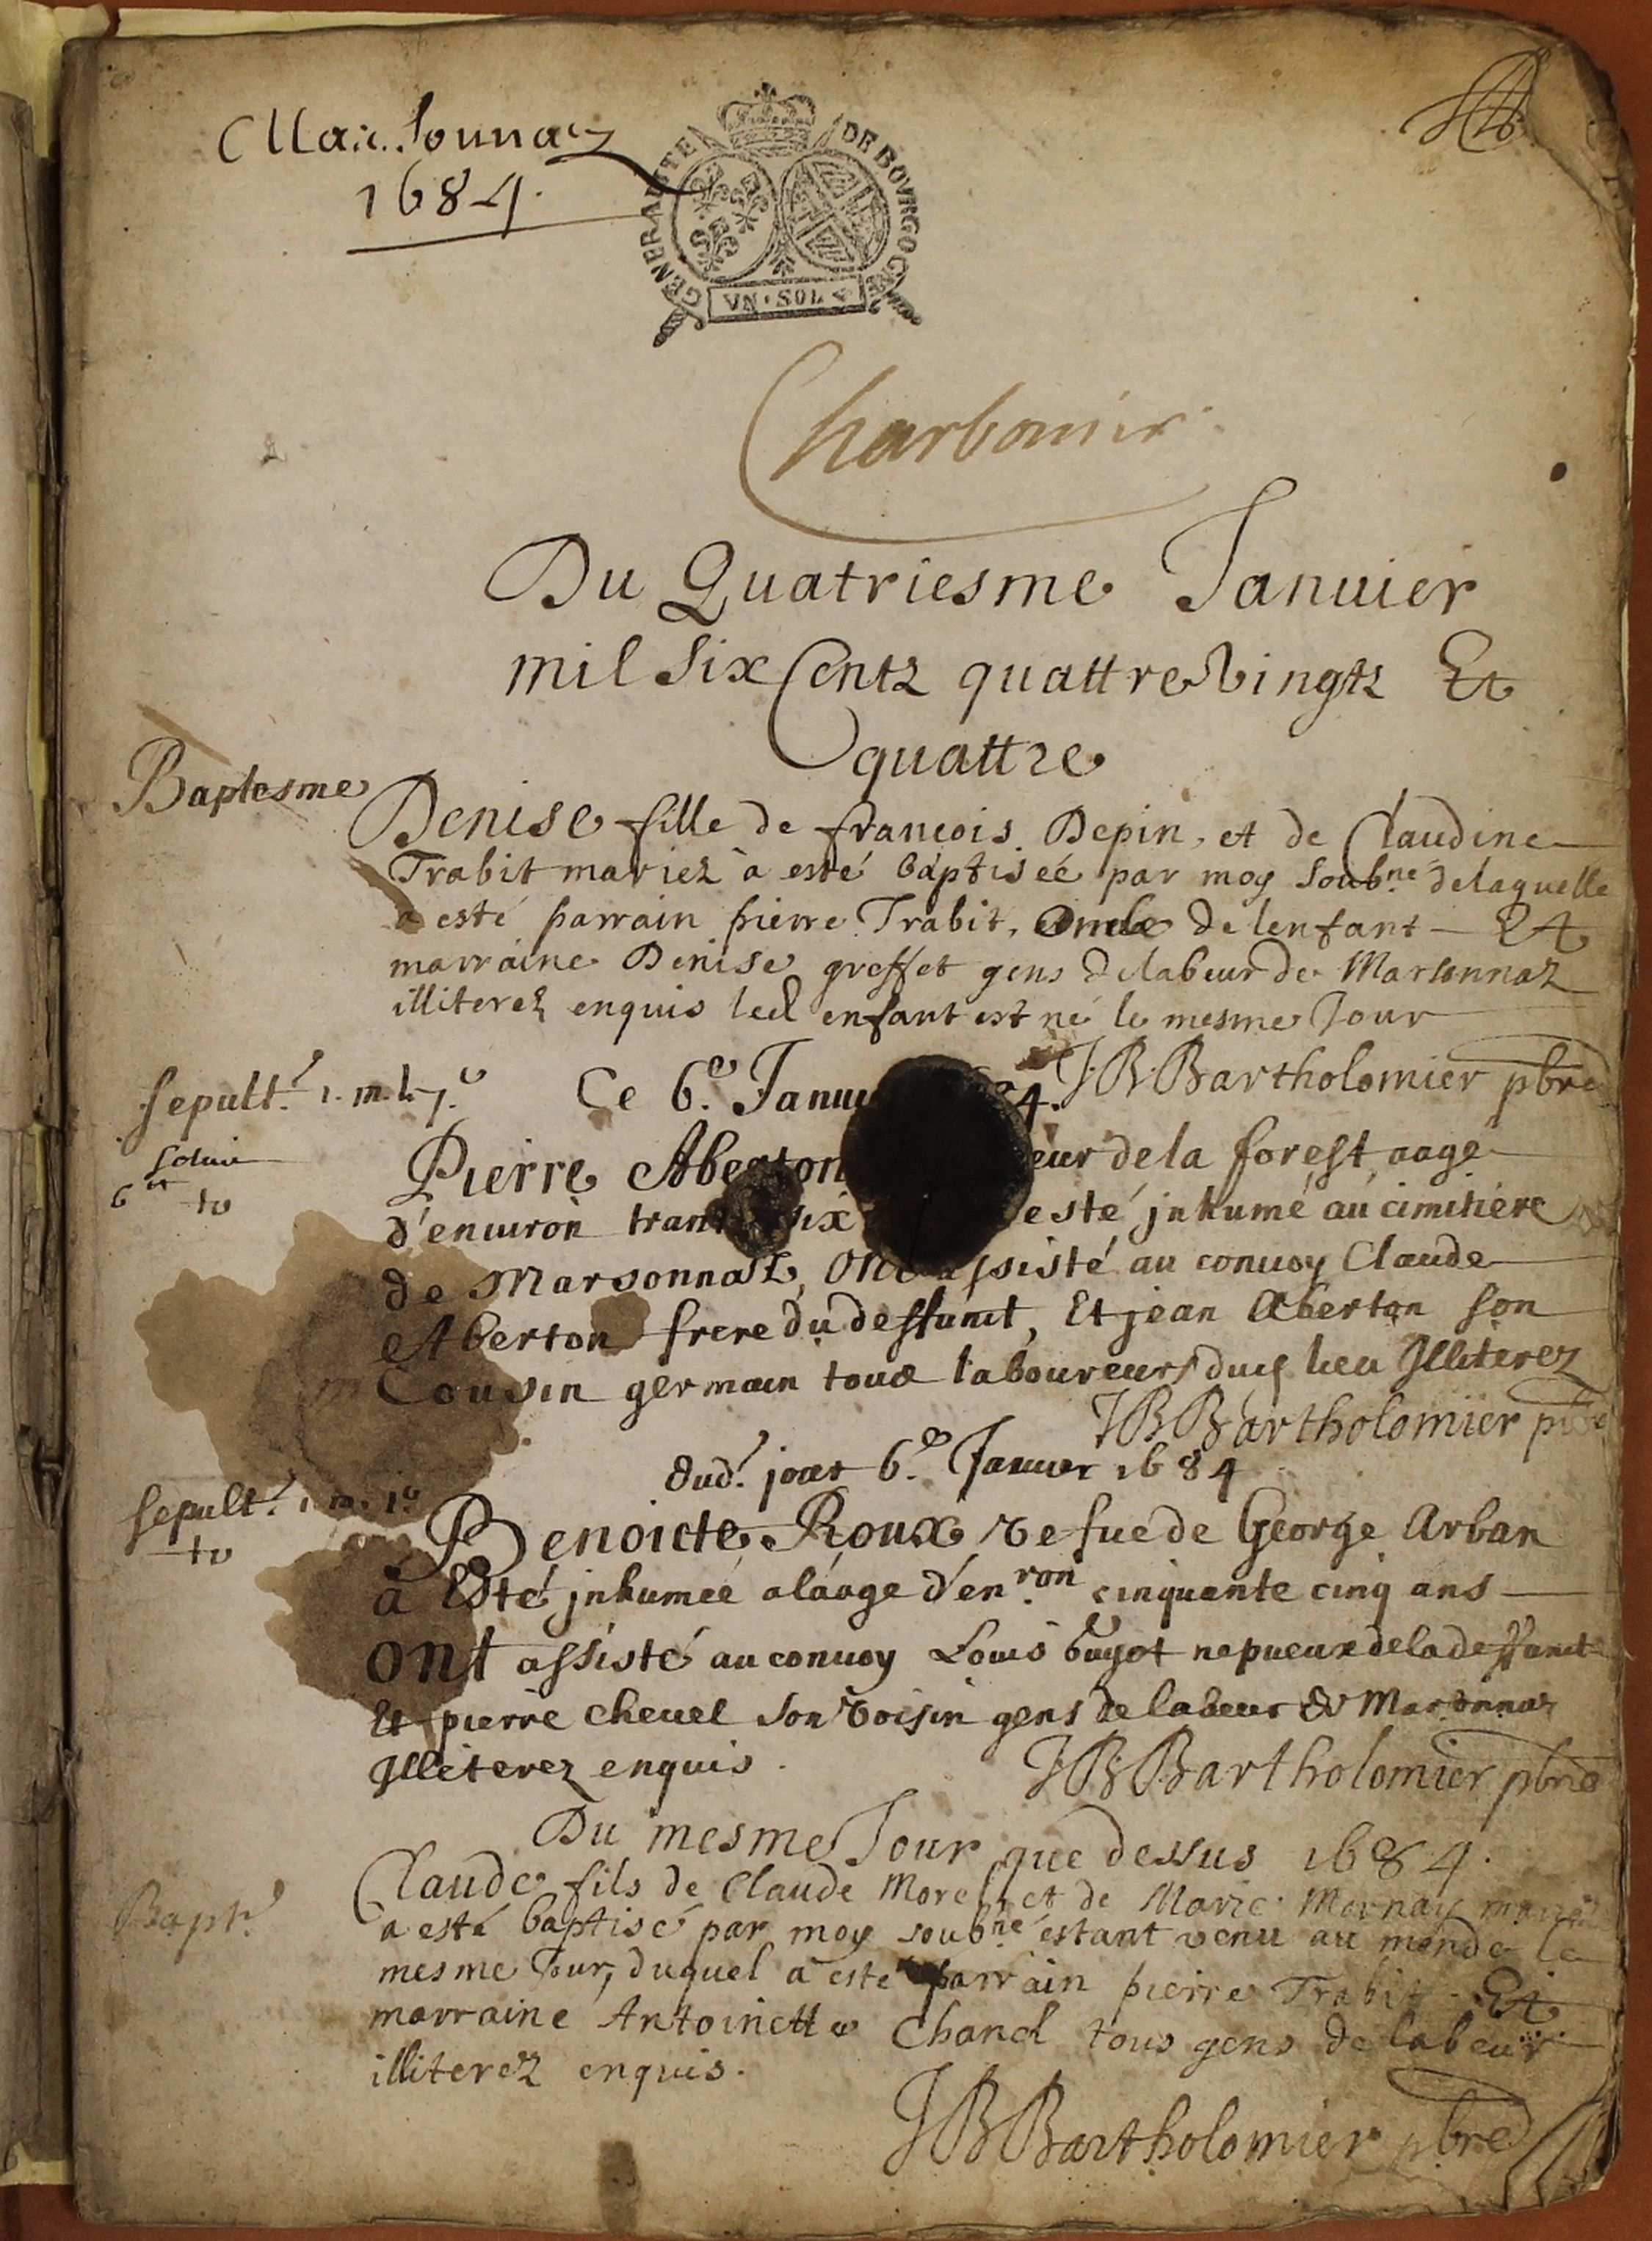 Marsonnaz
1684.
GENERALITE DE BOVRGOGNE
VN · SOL
Charbonier
Du Quatriesme Januier
mil Six Centz quattre Vingtz Et
quattre
Baptesme
Denise fille de francois Depin, et de Claudine
Trabit mariez à esté baptiseé par moy Soub.né delaquelle
a esté parrain pierre Trabit, oncle de lenfant Et
marraine Denise greffet gens delabeur de Marsonnaz
illiterez enquis led enfant est né le mesme Jour
JB Bartholomier pbre
Sepult.e
Ce 6.e Januier 4.
Pierre Aberton eur dela forest aagé
d'enuiron trante six esté jnhumé au cimitiere
de Marsonnaz, Ont assisté au conuoy Claude
Aberton frere du deffunct, Et jean Aberton son
Cousin germain tous laboureurs dud lieu Jlliterez
JB Bartholomier pbre
Dud.t jour 6.e Januier 1684
Sepult.e
Benoicte Roux vefue de George Arban
à Esté jnhumeé alaage d'en.ron cinquante cinq ans
ont assisté au conuoy Louis buyot nepueux deladeffuncte
Et pierre cheuel Son Voisin gens de labeur de Marsonnaz
Jlliterez enquis.
JB Bartholomier pbre
Du mesme Jour que dessus 1684.
Bapt.e
Claude fils de Claude Morel et de Marie Mornay mariez
a esté baptisé par moy soub.né estant venu au monde le
mesme Jour, duquel à esté parrain pierre Trabit Et
marraine Antoinette Chanel tous gens de labeur
illiterez enquis.
JB Bartholomier pbre